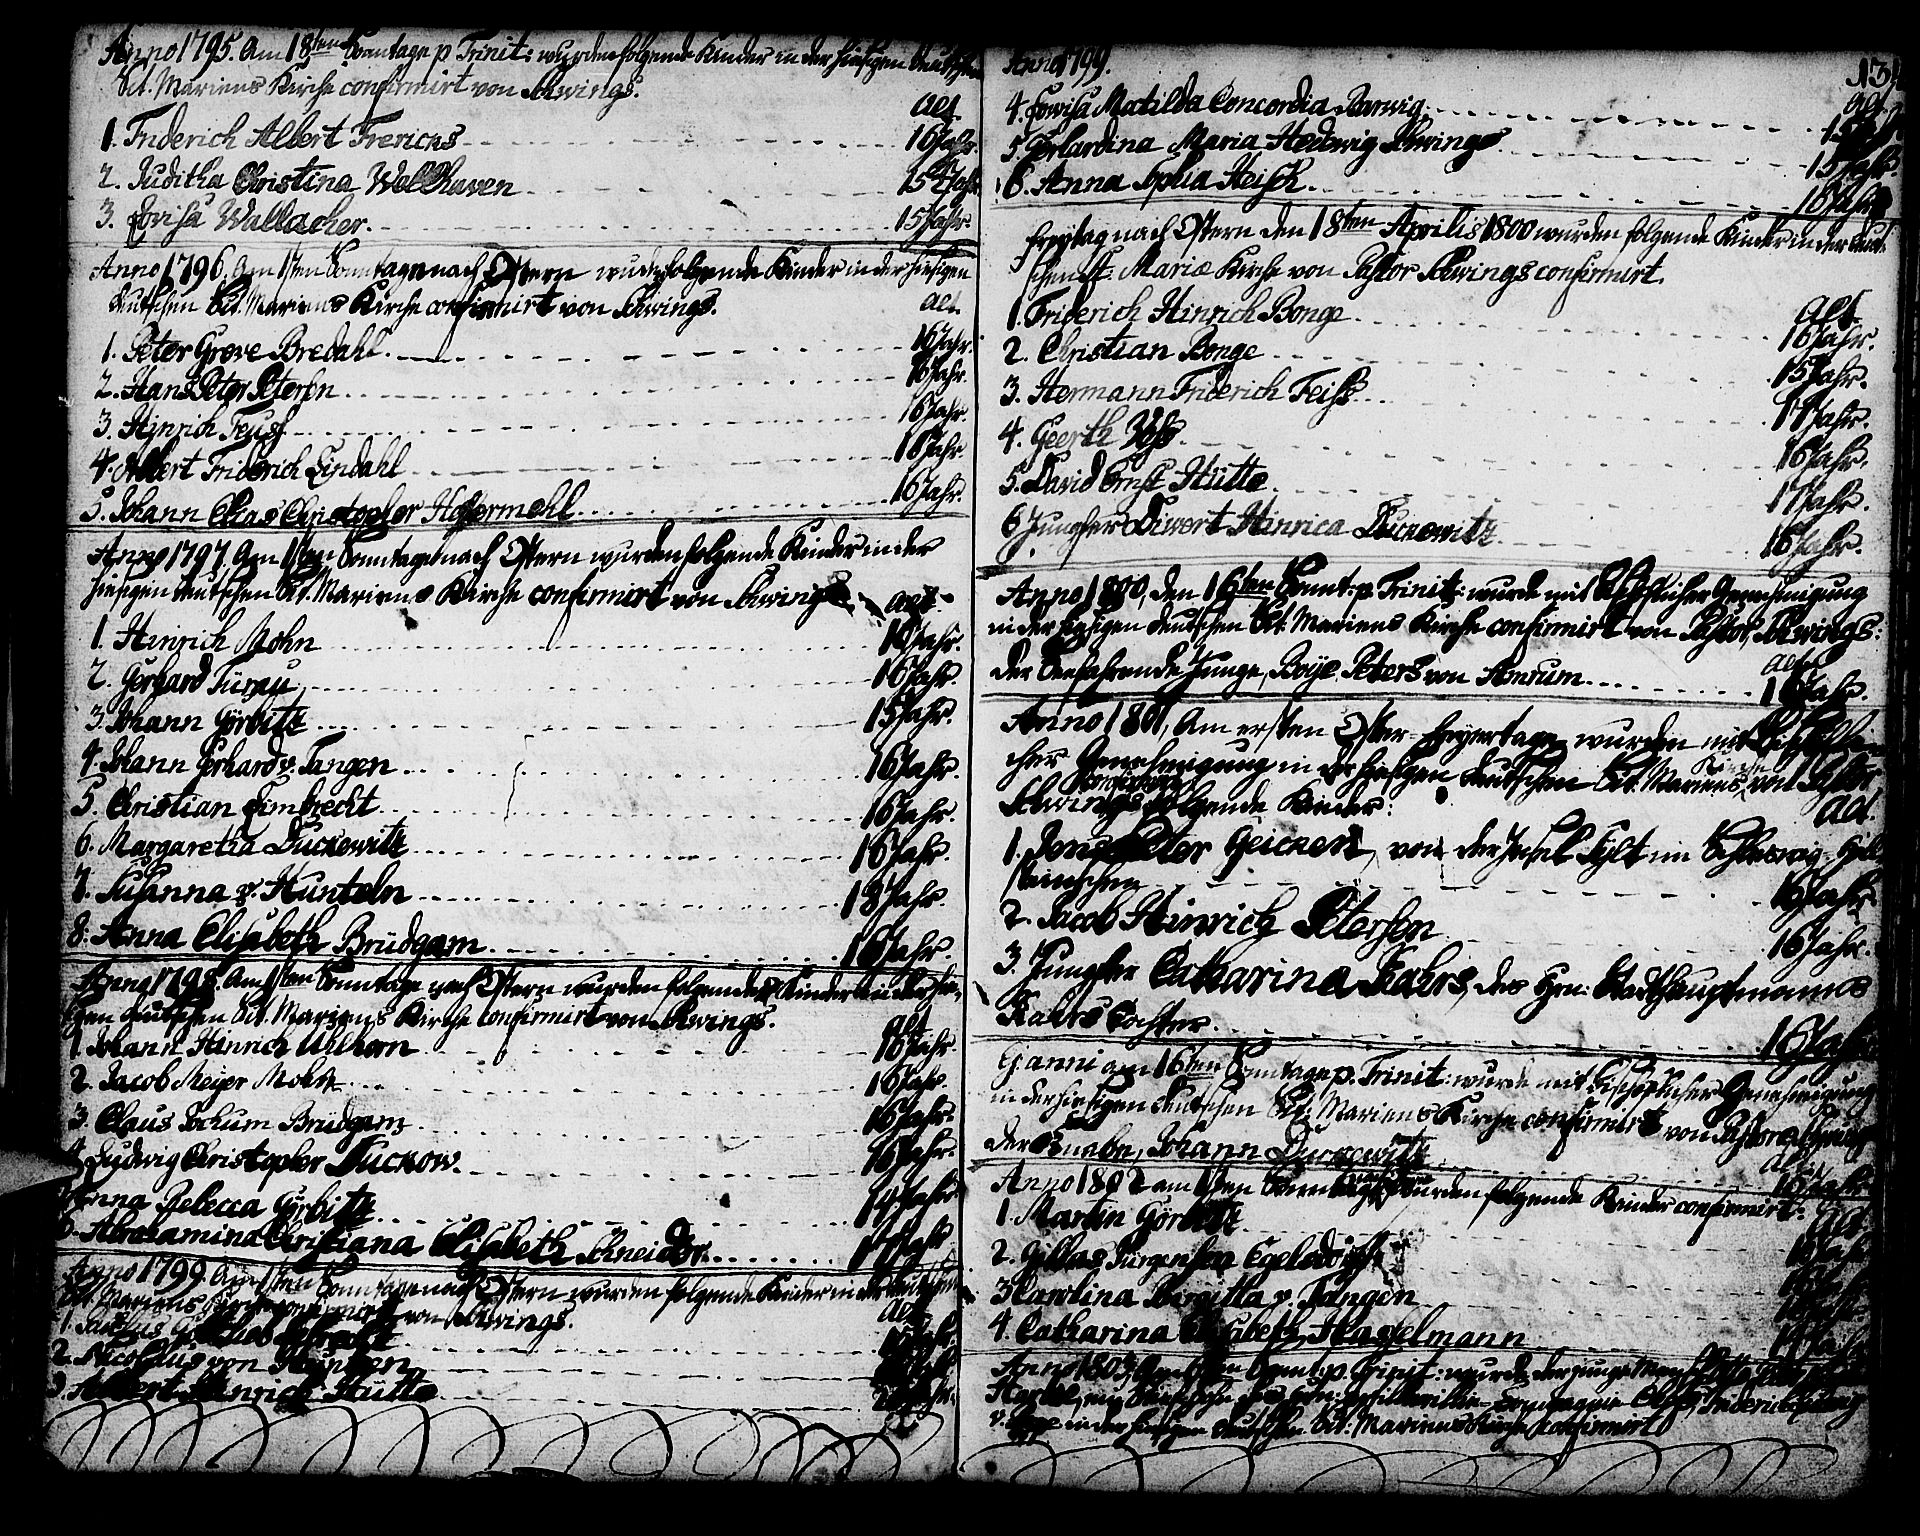 Anno 1795. Am 18ten Sontage p Trinit: wurden folgende Kinder in der hiesigen deutschen
Sct. Mariens Kirche confirmirt von Schwings.
alt
1. Friderich Albert Frericks 16 Jahr.
2. Juditha Christina Wellhaven 15½ Jahr
3. Lovisa Wallacher. 15 Jahr.
Anno 1796. Am 1sten Sonntage nach Ostern wurden folgende Kinder in der hiesigen
deutschen Sct. Mariens Kirche confirmirt von Schwings.
alt.
1. Peter Greve Bredahl. 16 Jahr.
2. Hans Peter Petersen 16 Jahr.
3. Hinrich 16 Jahr.
4. Albert Friderich Lindahl 18 Jahr
5. Johann Elias Christopher Hafermehl 16 Jahr.
Anno 1797. Am 1sten Sonntage nach Ostern wurden folgende Kinder in der
hiesigen deutschen Sct. Mariens Kirche confirmirt von Schwings
alt
1. Hinrich Mohn 16 Jahr.
2. Gerhard 16 Jahr.
3. Johann Görbitz 15 Jahr.
4. Johann Gerhard v. Tangen 16 Jahr.
5. Christian Limbrecht 16 Jahr.
6. Margaretha Duckewitz 16 Jahr.
7. Susanna v. Hunteln 18 Jahr.
8. Anna Elisabeth Brüdgam 16 Jahr.
Anno 1798. Am 1sten Sonntage nach Ostern wurden folgende Kinder in der hie-
sigen deutschen Sct. Mariens Kirche confirmirt von Schwings.
alt
1. Johann Hinrich Ulhorn 16 Jahr.
2. Jacob Meyer Mohr 16 Jahr.
3. Claus Jochum Brüdgam 16 Jahr.
4. Ludwig Christopher Duckow. 16 Jahr.
Anna Rebecca Görbitz 14 Jahr
6. Abrahamina Christiana Elisabeth Schneider. 17 Jahr
Anno 1799. Am 1sten Sonntage nach Ostern wurden folgende Kinder in der deutschen
Sct. Mariens Kirche confirmirt von Schwings.
alt
1.
2. Nicolaus von Hunteln
3. Albert Hinrich Hütte
Anno 1799.
134
alt
4. Lovisa Matilda Concordia Barwig 15 Jahr
5. Gerhardina Maria Hedwig Schwings 15 Jahr.
6. Anna Sophia Heisch. 16 Jahr
Freytag nach Ostern den 18ten Aprilis 1800 wurden folgende Kinder in der deut-
schen St. Mariæ Kirche von Pastor Schwings confirmirt.
alt
1. Friderich Hinrich Bonge 16 Jahr.
2. Christian Bonge 15 Jahr.
3. Hermann Friderich 17 Jahr.
4. Geerth 16 Jahr.
5. David Ernst Hütte 17 Jahr.
6 Jungfer Siwert Hinrica Duckewitz 16 Jahr.
Anno 1800, den 16ten Sonnt: p Trinit: wurde mit Bischöflicher Genehmigung
in der hiesigen deutschen Sct. Mariens Kirche confirmirt von Pastor Schwings:
der Seefahrende Junge, Boÿe Peters von Amrum
alt
16 Jahr.
Anno 1801, Am ersten Oster-Feyertage wurden mit Bischöfli-
cher Genehmigung in der hiesigen deutschen Sct. Mariens Kirche von Pastor
Schwings confirmirt folgende Kinder:
alt.
1. Jens Peter Geicken, von der Insel Sylt im Schleswig-Hol-
steinischen 16 Jahr
2. Jacob Hinrich Petersen 16 Jahr.
3. Jungfer Catharina Kahrs, des Hrn: Stadthauptmanns
Kahrs Tochter. 16 Jahr
Ej: anni am 16ten Sonntage p. Trinit: wurde mit Bischöflicher Genehmigung
in der hiesigen deutschen Sct. Mariens Kirche confirmirt von Pastore Schwings
der Knabe, Johann Duckewitz
alt
16 Jahr
Anno 1802 am 1sten Sonntage wurden folgende Kinder confirmirt:
alt.
1. Martin Görbitz
2. Jürgensen Egelsdörff
3 Carolina Birgitta v. Tangen
4. Catharina Elisabeth Hasselmann
Anno 1803, Sonnt: p. Trinit: wurde der junge
Friderich
v. in der hiesigen deutschen Sct: Mariens Kirche confirmirt